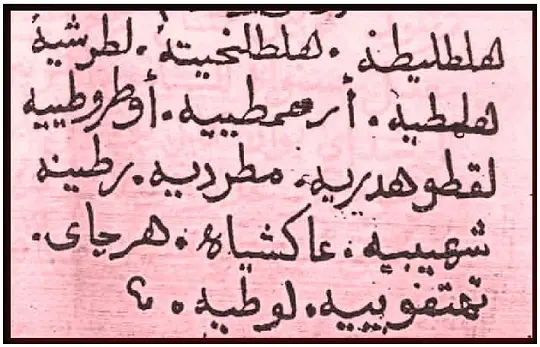 هلطليطة . هلطلخيتة . لطرشية
هلمطية . أرعمطيية . أوطروطييه
لقطوهديريه . مطرديه . رطينه
شهيبيه . عاكشياه . هرجاى .
تمتفوييه . لوطيه .